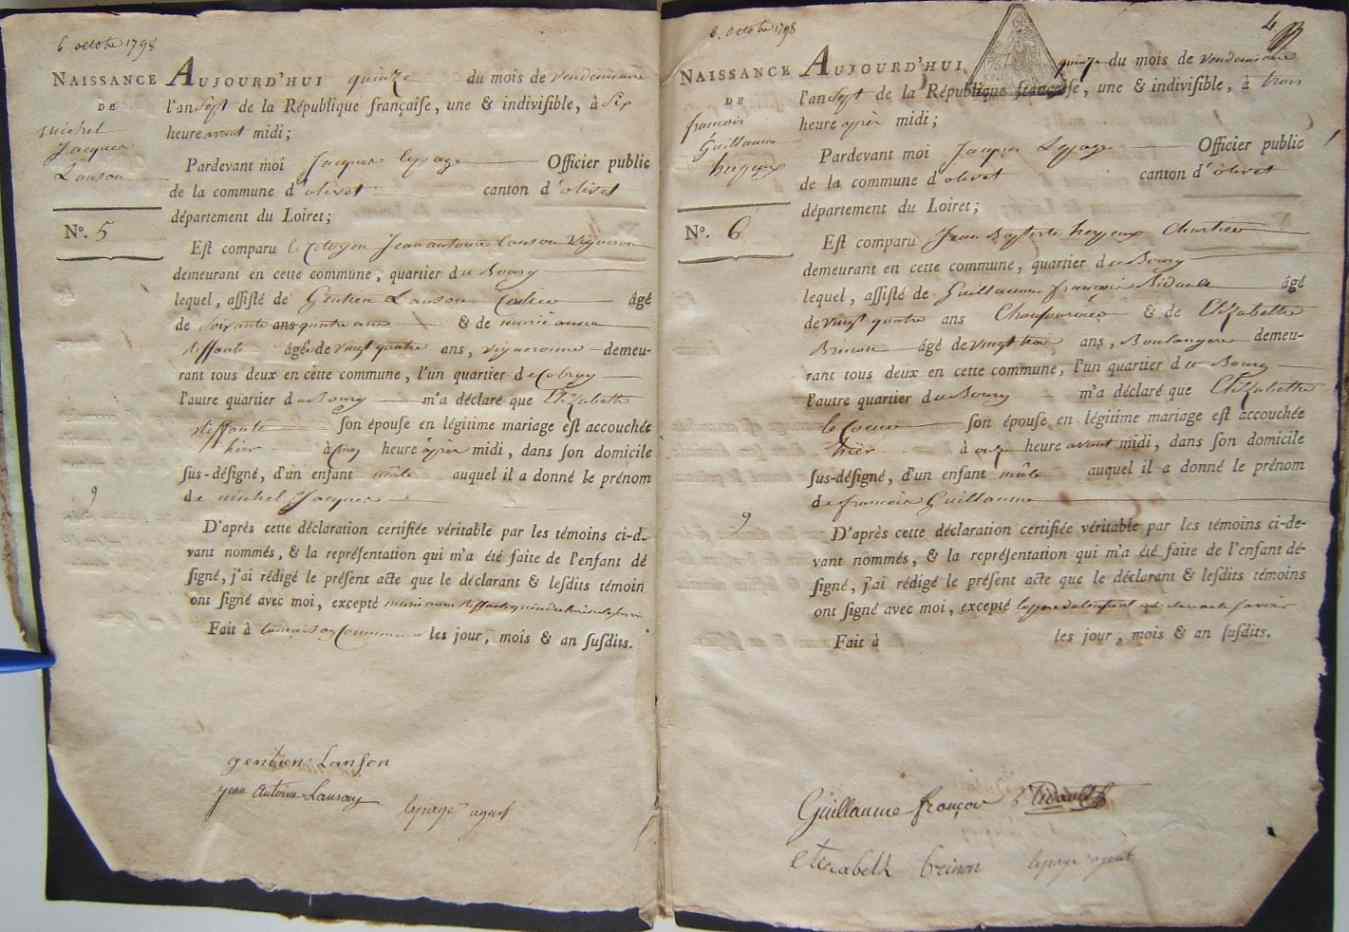 6 octobre 1798
NAISSANCE
DE
michel
Jacques
Lanson
N°. 5
AUJOURD'HUI quinze du mois de vendemiaire
l'an sept de la République françaiſe, une & indiviſible, à six
heure avant midi;
Pardevant moi Jacques lepage Officier public
de la commune d'olivet canton d'olivet
département du Loiret;
Eſt comparu le Citoyen Jean antoine lanson Vigneron
demeurant en cette commune, quartier du Bourg
lequel, aſſiſté de Gentien Lanson âgé
de soixante ans quatre ans & de
âgé de vingt quatre ans, vigneronne demeu-
rant tous deux en cette commune, l'un quartier de
l'autre quartier du Bourg m'a déclaré que Elizabette
ſon épouſe en légitime mariage eſt accouchée
hier à cinq heure après midi, dans ſon domicile
ſus-déſigné, d'un enfant mâle auquel il a donné le prénom
de michel Jacques
D'après cette déclaration certifiée véritable par les témoins ci-de-
vant nommés, & la repréſentation qui m'a été faite de l'enfant dé
ſigné, j'ai rédigé le préſent acte que le déclarant & leſdits témoin
ont ſigné avec moi, excepté
Fait à la maison Commune les jour, mois & an ſuſdits.
gentien Lanson
jean Antoine Lanson
lepage agent
6. octobre 1798
4
NAISSANCE
DE
francois
Guillaume
heyeux
N°. 6
AUJOURD'HUI quinze du mois de vendemiaire
l'an sept de la République françaiſe, une & indiviſible, à trois
heure après midi;
Pardevant moi Jacques Lepage Officier public
de la commune d'olivet canton d'olivet
département du Loiret;
Eſt comparu Jean Baptiste heyeux
demeurant en cette commune, quartier du Bourg
lequel, aſſiſté de Guillaume françois Ridault âgé
de vingt quatre ans & de Elizabette
Brinon âgé de vingt ans, Boulangere demeu-
rant tous deux en cette commune, l'un quartier du Bourg
l'autre quartier du Bourg m'a déclaré que Elizabette
ſon épouſe en légitime mariage eſt accouchée
hier à onze heure avant midi, dans ſon domicile
ſus-déſigné, d'un enfant mâle auquel il a donné le prénom
de francois Guillaume
D'après cette déclaration certifiée véritable par les témoins ci-de-
vant nommés, & la repréſentation qui m'a été faite de l'enfant dé-
ſigné, j'ai rédigé le préſent acte que le déclarant & leſdits témoins
ont ſigné avec moi, excepté le pere de lenfant
Fait à les jour, mois & an ſuſdits.
Guillaume françois Ridault
Elizabeth brinon
lepage agent